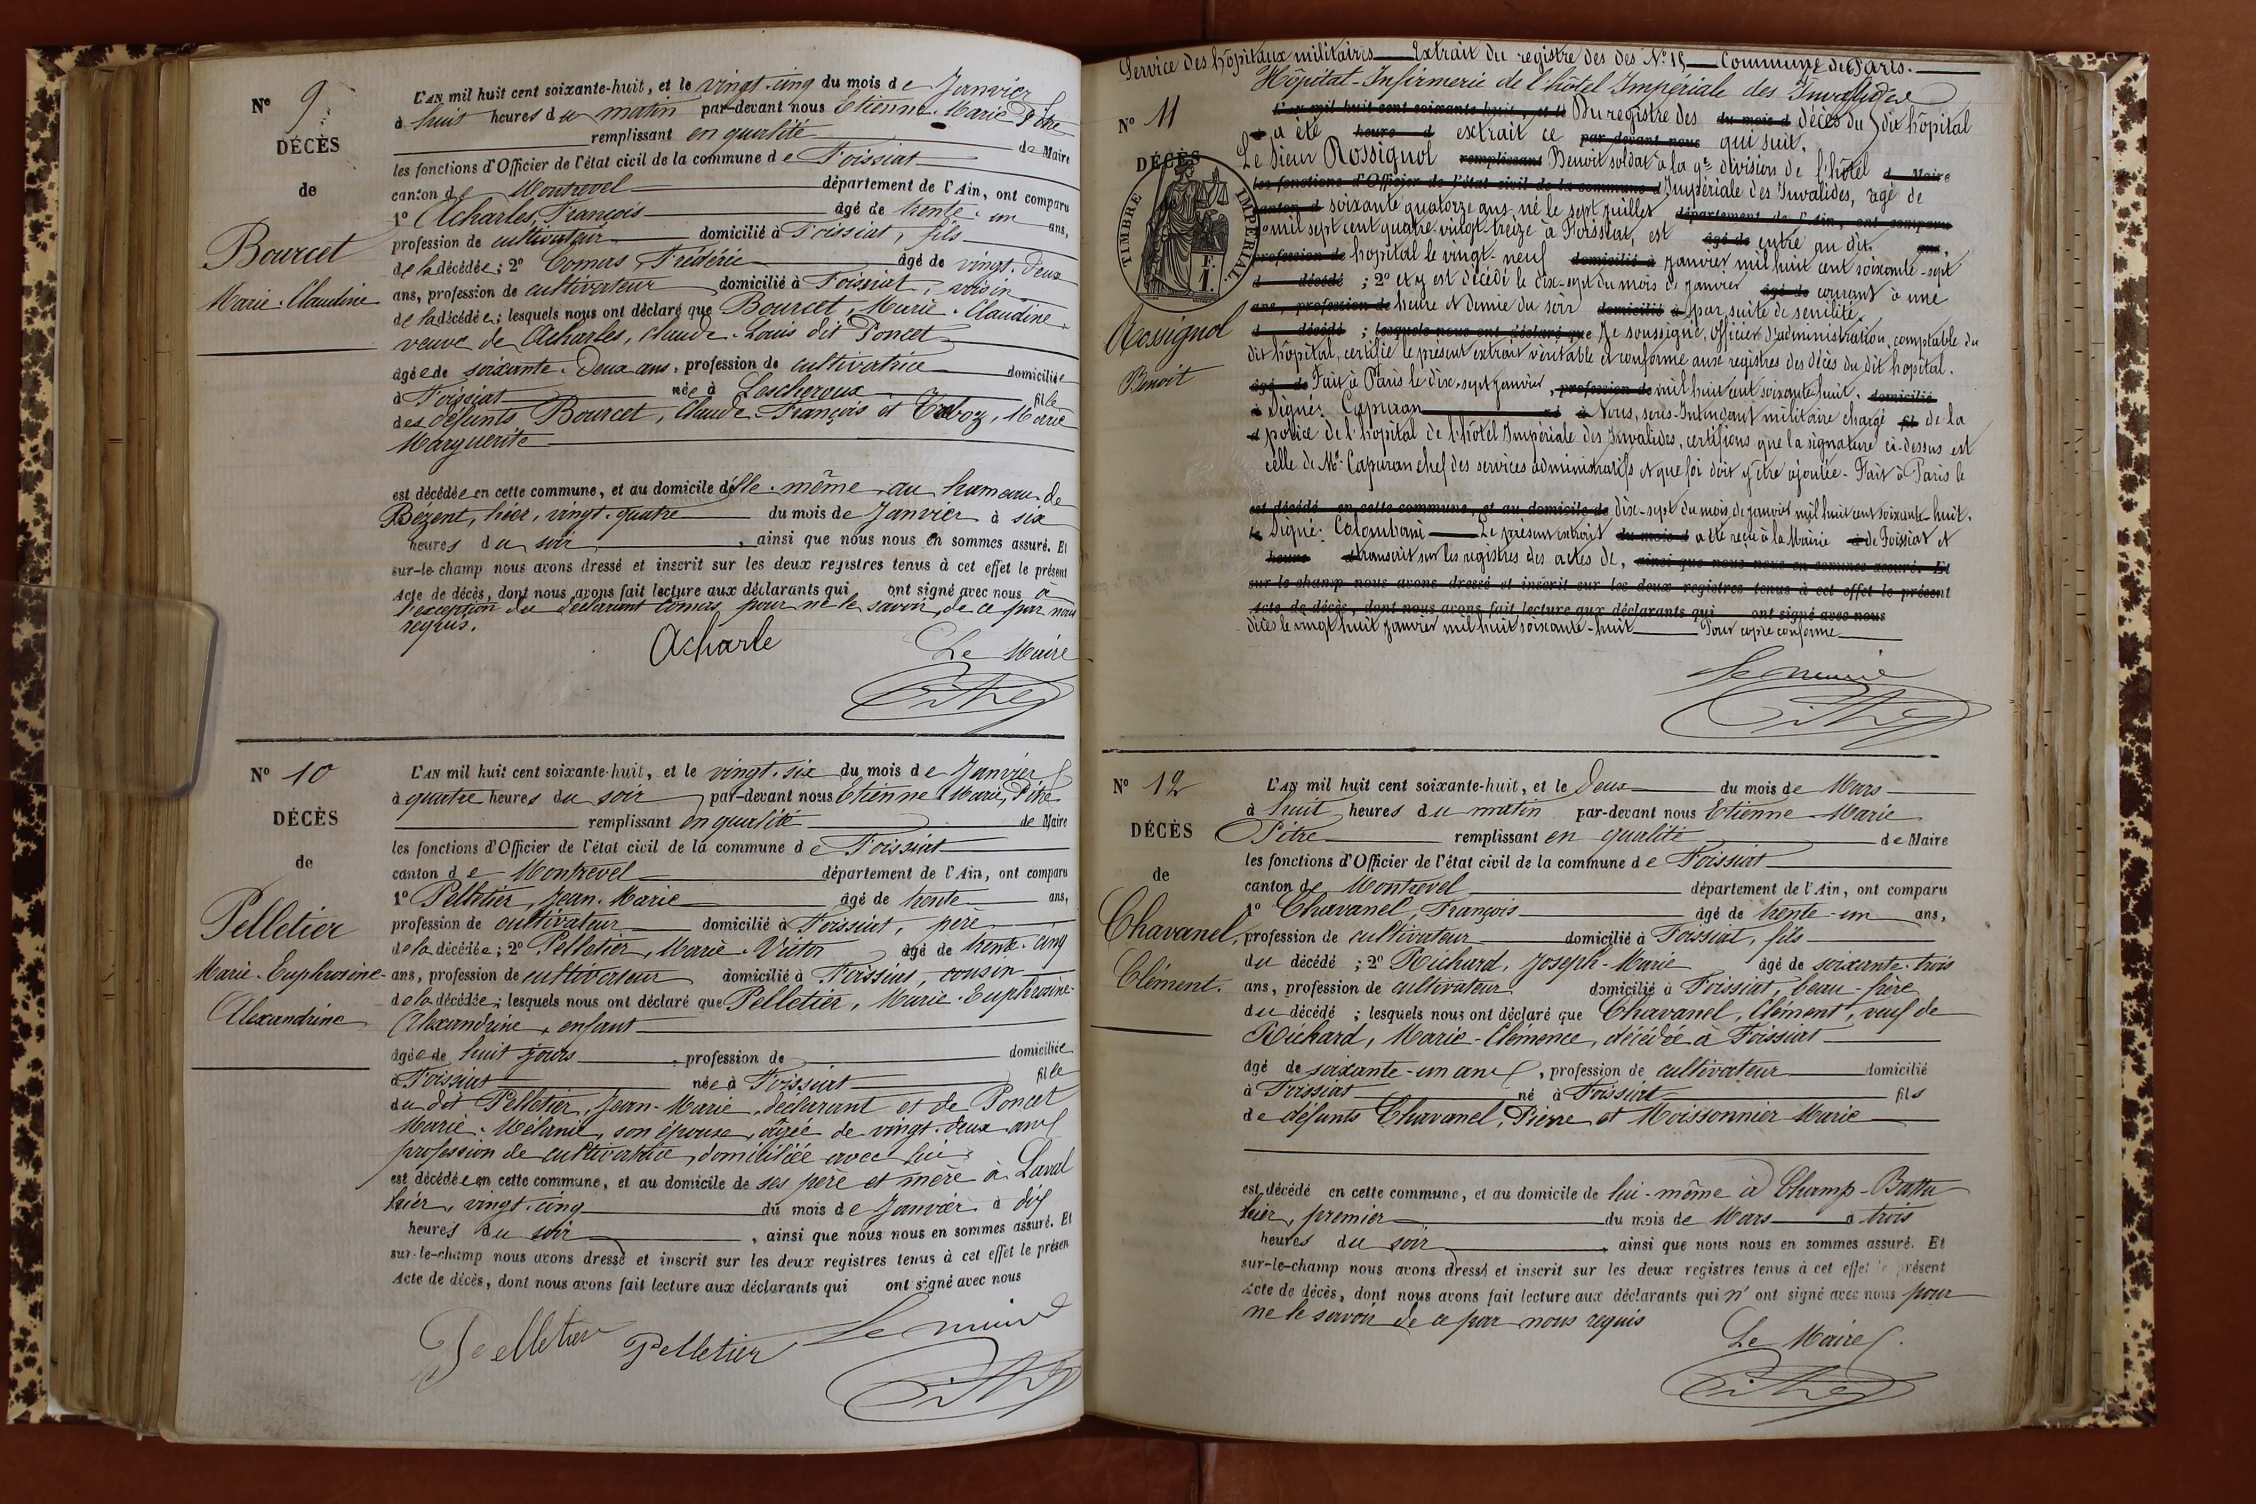 N° 9
DÉCÈS
de
Bourcet
Marie-Claudine
L'AN mil huit cent soixante-huit, et le vingt-cinq du mois de Janvier
à huit heures du matin par-devant nous Etienne-Marie Pitre
remplissant en qualité de Maire
les fonctions d'Officier de l'état civil de la commune de Foissiat
canton de Montrevel département de l'Ain, ont comparu
1° Acharles, François âgé de trente-un ans,
profession de cultivateur domicilié à Foissiat, fils
de la décédée; 2° Comas, Frédéric âgé de vingt-deux
ans, profession de cultivateur domicilié à Foissiat, voisin
de la décédée; lesquels nous ont déclaré que Bourcet, Marie-Claudine
veuve de Acharles, Claude-Louis dit Poncet
âgée de soixante-deux ans, profession de cultivatrice domiciliée
à Foissiat née à Lescheroux fille
des défunts Bourcet, Claude-François et Marie
Marguerite
est décédée en cette commune, et au domicile d'elle-même au hameau de
Bézent, hier, vingt-quatre du mois de Janvier à six
heures du soir, ainsi que nous nous en sommes assuré. Et
sur-le-champ nous avons dressé et inscrit sur les deux registres tenus à cet effet le présent
Acte de décès, dont nous avons fait lecture aux déclarants qui ont signé avec nous à
l'exception du déclarant Comas, pour ne le savoir, de ce par nous
requis.
Acharle Le Maire
Pitre
N° 10
DÉCÈS
de
Pelletier
Marie-Euphrosine-
Alexandrine
L'AN mil huit cent soixante-huit, et le vingt-six du mois de Janvier
à quatre heures du soir, par-devant nous Etienne-Marie Pitre
remplissant en qualité de Maire
les fonctions d'Officier de l'état civil de la commune de Foissiat
canton de Montrevel département de l'Ain, ont comparu
1° Pelletier, Jean-Marie âgé de trente ans,
profession de cultivateur domicilié à Foissiat, père
de la décédée; 2° Pelletier, Marie-Victor âgé de trente-cinq
ans, profession de cultivateur domicilié à Foissiat, cousin
de la décédée; lesquels nous ont déclaré que Pelletier, Marie-Euphrosine-
Alexandrine, enfant
âgée de huit jours, profession de domiciliée
à Foissiat née à Foissiat fille
du dit Pelletier, Jean-Marie, déclarant et de Poncet
Marie-Mélanie, son épouse, âgée de vingt-deux ans
profession de cultivatrice, domiciliée avec lui
est décédée en cette commune, et au domicile de ses père et mère à Laval
hier, vingt-cinq du mois de Janvier à dix
heures du soir, ainsi que nous nous en sommes assuré. Et
sur-le-champ nous avons dressé et inscrit sur les deux registres tenus à cet effet le présen
Acte de décès, dont nous avons fait lecture aux déclarants qui ont signé avec nous
Pelletier Pelletier Le maire
Pitre
Service des hôpitaux militaires — Extrait du registre des des N° 15 — Commune de Paris.
Hôpital-Infirmerie de l'hôtel Impériale des Invalides
N° 11
DÉCÈS
TIMBRE IMPERIAL
F.
1.
Rossignol
Benoit
L'an mil huit cent soixante-huit, et le Du registre des du mois d décès du dit hôpital
a été heure d extrait ce par-devant nous qui suit.
Le Sieur Rossignol remplissant Benoit soldat à la 9e division de l'hôtel d Maire
les fonctions d'Officier de l'état civil de la commune d Impériale des Invalides, âgé de
canton d soixante quatorze ans, né le sept juillet département de l'Ain, ont comparu
1° mil sept cent quatre vingt-treize à Foissiat, est âgé de entré au dit ans,
profession de hôpital le vingt-neuf domicilié à janvier mil huit cent soixante-sept
d décédé ; 2° et y est décédé le dix-sept du mois de janvier âgé de courant à une
ans, profession de heure et demie du soir domicilié à par suite de sénilité.
d décédé ; lesquels nous ont déclaré que Je soussigné, Officier d'administration, comptable du
dit hôpital, certifie le présent extrait véritable et conforme aux registres des décès du dit hôpital.
âgé de Fait à Paris le dix-sept janvier, profession de mil huit cent soixante-huit. domicilié
à Signé: Capuran né à Nous, sous-Intendant militaire chargé fil de la
d police de l'hôpital de l'hôtel Impériale des Invalides, certifions que la signature ci-dessus est
celle de Mr. Capuran chef des services administratifs et que foi doit y être ajoutée. Fait à Paris le
est décédé en cette commune, et au domicile de dix-sept du mois de janvier mil huit cent soixante-huit.
le Signé: Colombani — Le présent extrait du mois d a été reçu à la Mairie à de Foissiat et
heure d transcrit sur les registres des actes de, ainsi que nous nous en sommes assuré. Et
sur-le-champ nous avons dressé et inscrit sur les deux registres tenus à cet effet le présent
Acte de décès, dont nous avons fait lecture aux déclarants qui ont signé avec nous
décès le vingt huit janvier mil huit soixante-huit — Pour copie conforme
Le maire
Pitre
N° 12
DÉCÈS
de
Chavanel,
Clément.
L'AN mil huit cent soixante-huit, et le Deux du mois de Mars
à huit heures du matin par-devant nous Etienne-Marie
Pitre remplissant en qualité de Maire
les fonctions d'Officier de l'état civil de la commune de Foissiat
canton de Montrevel département de l'Ain, ont comparu
1° Chavanel, François âgé de trente-un ans,
profession de cultivateur domicilié à Foissiat, fils
du décédé ; 2° Richard, Joseph-Marie âgé de soixante-trois
ans, profession de cultivateur domicilié à Foissiat, beau-frère
du décédé ; lesquels nous ont déclaré que Chavanel, Clément, veuf de
Richard, Marie-Clémence, décédée à Foissiat
âgé de soixante-un ans, profession de cultivateur domicilié
à Foissiat né à Foissiat fils
de défunts Chavanel, Pierre et Moissonnier Marie
est décédé en cette commune, et au domicile de lui-même à Champ-Battu
hier, premier du mois de Mars à trois
heures du soir, ainsi que nous nous en sommes assuré. Et
sur-le-champ nous avons dressé et inscrit sur les deux registres tenus à cet effet le présent
Acte de décès, dont nous avons fait lecture aux déclarants qui n'ont signé avec nous pour
ne le savoir de ce par nous requis
Le Maire
Pitre